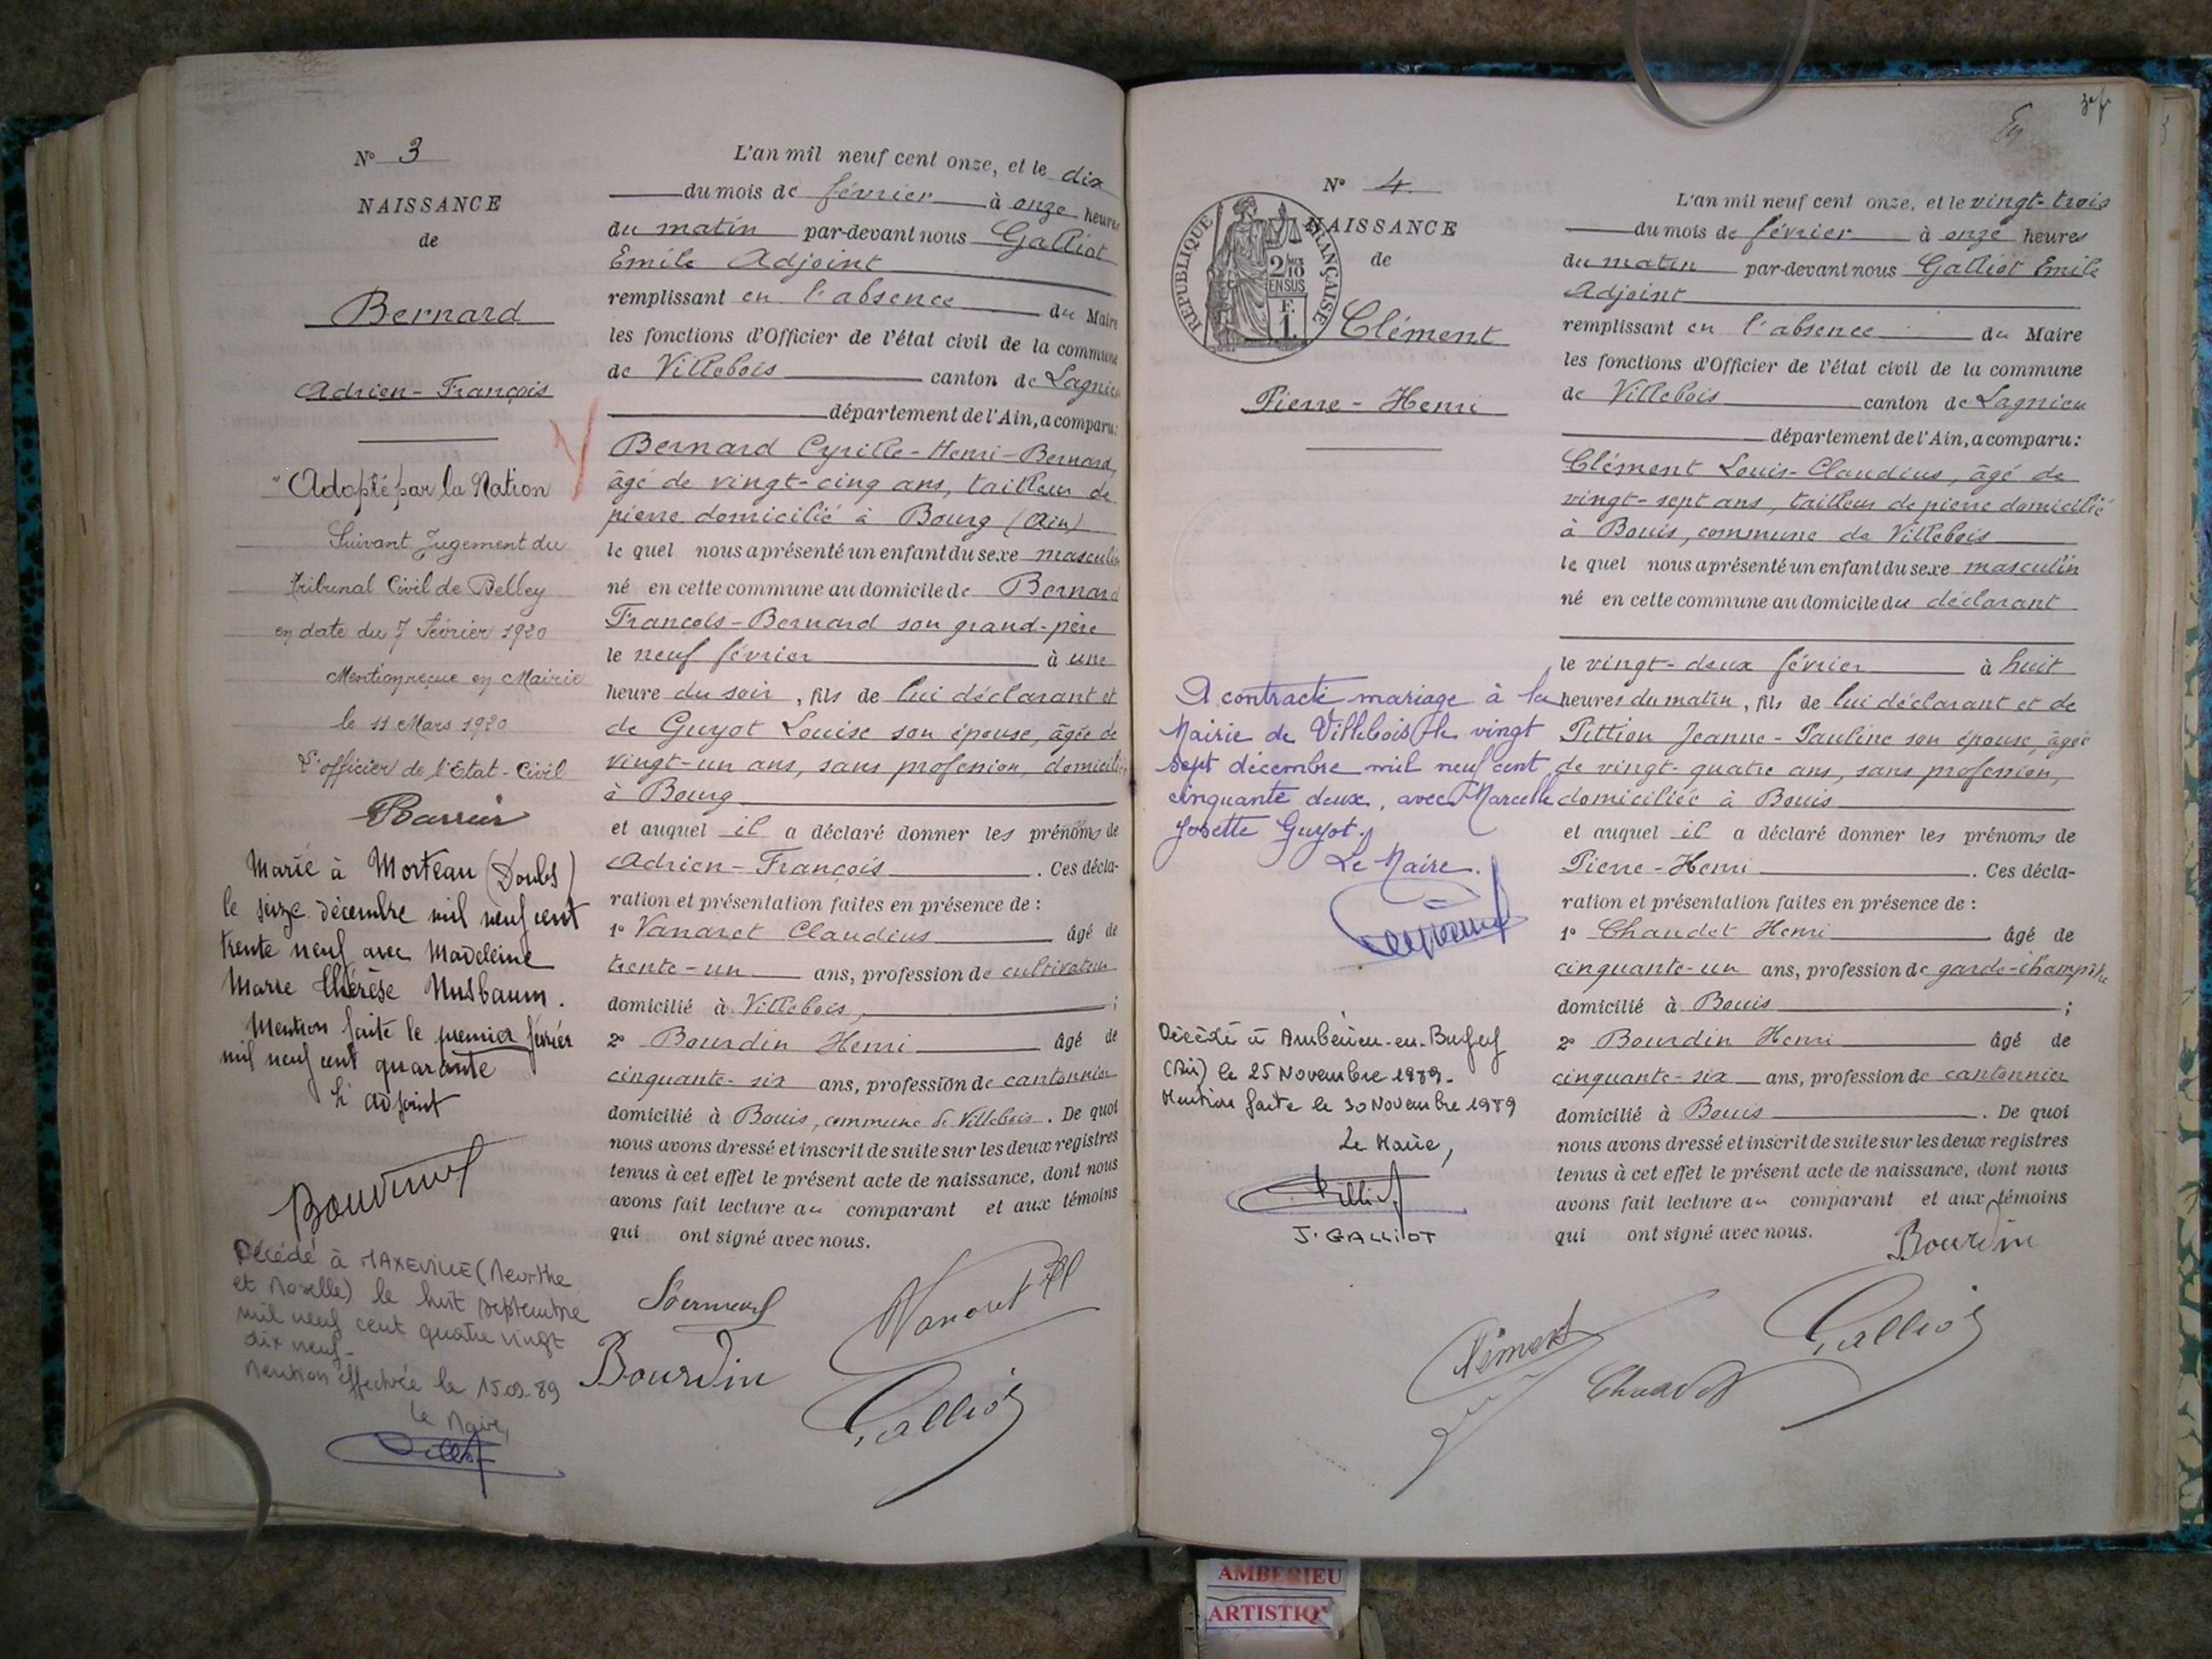 N° 3
NAISSANCE
de
Bernard
Adrien-François
"Adopté par la Nation
Suivant Jugement du
Tribunal Civil de Belley
en date du 7 Février 1920
Mention reçue en Mairie
le 11 Mars 1920
L'officier de l'Etat-Civil
Marié à Morteau (Doubs)
le seize décembre mil neuf cent
trente neuf avec Madeleine
Marie Thérèse Nusbaum.
Mention faite le premier février
mil neuf cent quarante
L'adjoint
Décédé à MAXEVILLE (Meurthe
et Moselle) le huit septembre
mil neuf cent quatre vingt
dix neuf-
mention effectuée le 15.09.89
Le Maire,
L'an mil neuf cent onze, et le dix
du mois de février à onze heures
du matin par-devant nous Galliot
Emile Adjoint
remplissant en l'absence du Maire
les fonctions d'Officier de l'état civil de la commune
de Villebois canton de Lagnieu
département de l'Ain, a comparu:
Bernard Cyrille-Henri-Bernard,
âgé de vingt-cinq ans, tailleur de
pierre domicilié à Bourg (Ain)
le quel nous a présenté un enfant du sexe masculin
né en cette commune au domicile de Bernard
François-Bernard son grand-père
le neuf février à une
heure du soir, fils de lui déclarant et
de Guyot Louise son épouse, âgée de
vingt-un ans, sans profession, domiciliée
à Bourg
et auquel il a déclaré donner les prénoms de
Adrien-François. Ces décla-
ration et présentation faites en présence de :
1° Vanaret Claudius âgé de
trente-un ans, profession de cultivateur
domicilié à Villebois, ;
2° Bourdin Henri âgé de
cinquante-six ans, profession de cantonnier
domicilié à Bouis, commune de Villebois. De quoi
nous avons dressé et inscrit de suite sur les deux registres
tenus à cet effet le présent acte de naissance, dont nous
avons fait lecture au comparant et aux témoins
qui ont signé avec nous.
Bourdin
Galliot
N° 4
NAISSANCE
de
REPUBLIQUE FRANÇAISE
2/10
EN SUS
F.
1.
Clément
Pierre-Henri
A contracté mariage à la
Mairie de Villebois, le vingt
sept décembre mil neuf cent
cinquante deux, avec Marcelle
Josette Guyot.
Le Maire.
Décédé à Ambérieu-en-Bugey
(Ain) le 25 Novembre 1989.
Mention faite le 30 Novembre 1989
Le Maire,
J. GALLIOT
L'an mil neuf cent onze, et le vingt-trois
du mois de février à onze heures
du matin par-devant nous Galliot Emile
Adjoint
remplissant en l'absence du Maire
les fonctions d'Officier de l'état civil de la commune
de Villebois canton de Lagnieu
département de l'Ain, a comparu:
Clément Louis-Claudius, âgé de
vingt-sept ans, tailleur de pierre domicilié
à Bouis, commune de Villebois
le quel nous a présenté un enfant du sexe masculin
né en cette commune au domicile du déclarant
le vingt-deux février à huit
heures du matin, fils de lui déclarant et de
Pittion Jeanne-Pauline son épouse, âgée
de vingt-quatre ans, sans profession,
domiciliée à Bouis
et auquel il a déclaré donner les prénoms de
Pierre-Henri. Ces décla-
ration et présentation faites en présence de :
1° Chaudet Henri âgé de
cinquante-un ans, profession de garde-champêtre
domicilié à Bouis ;
2° Bourdin Henri âgé de
cinquante-six ans, profession de cantonnier
domicilié à Bouis. De quoi
nous avons dressé et inscrit de suite sur les deux registres
tenus à cet effet le présent acte de naissance, dont nous
avons fait lecture au comparant et aux témoins
qui ont signé avec nous.
Bourdin
Clément
Galliot
Chaudet
AMBERIEU
ARTISTIQ